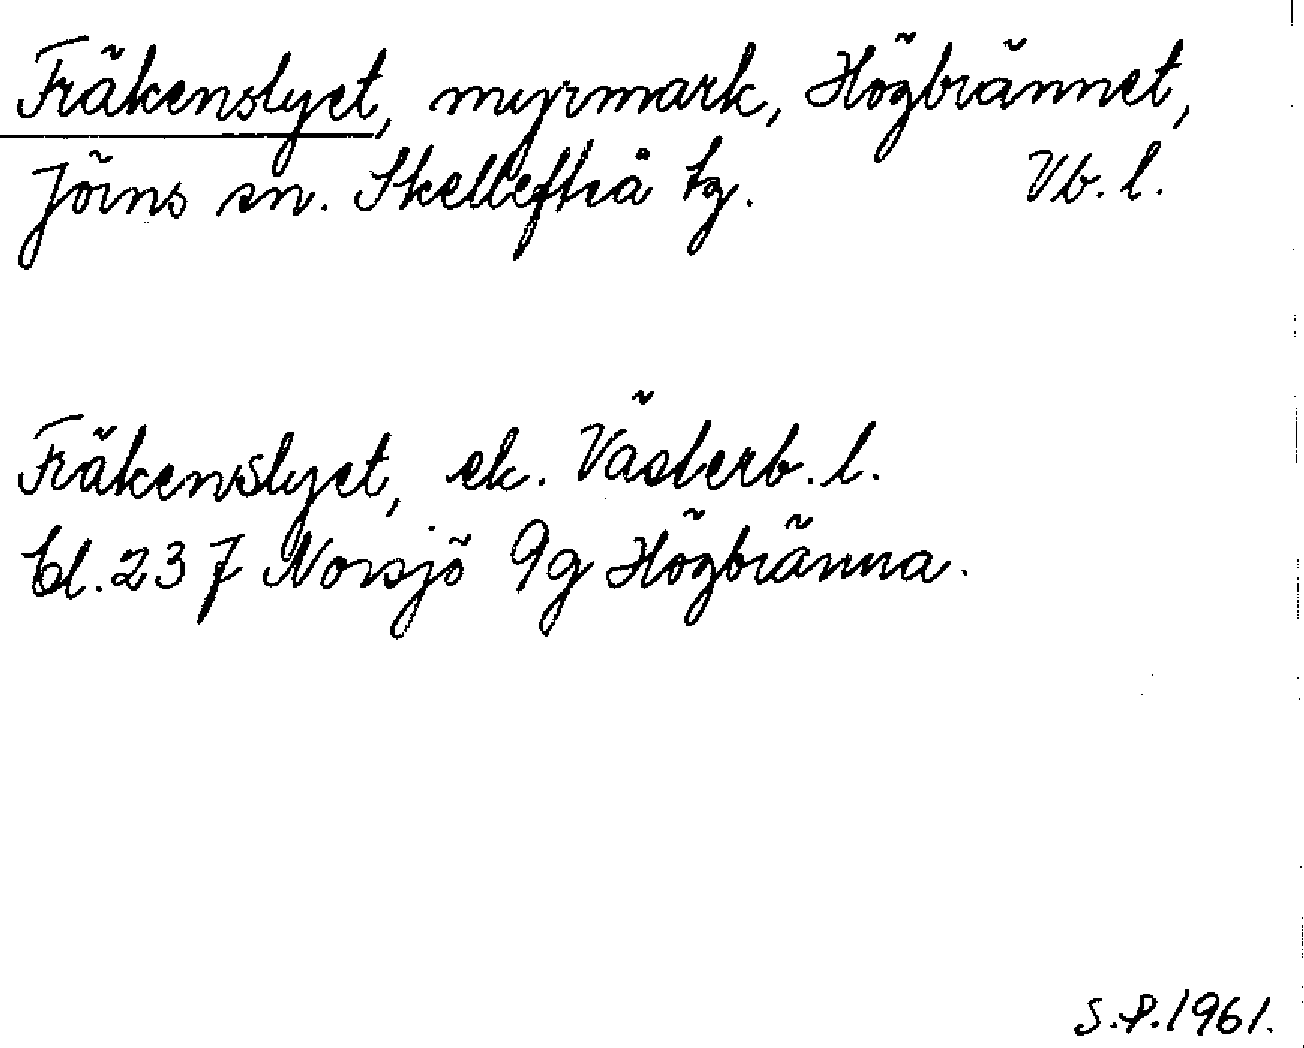 Fräkenslyet, myrmark, Högbrännet,
Jörns sn. Skellefteå tg. Vb. l.
Fräkenslyet, ek. Västerb. l.
bl. 237 Norsjö 9g Högbränna.
S.P. 1961.